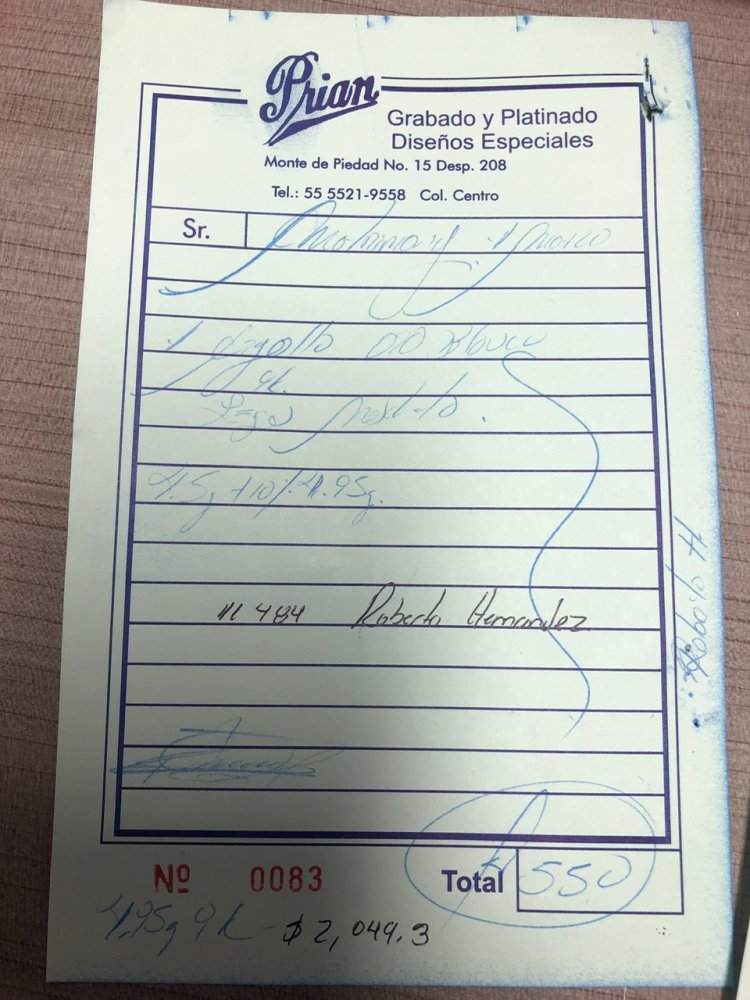 Prian
Grabado y Platinado
Diseños Especiales
Monte de Piedad No. 15 Desp. 208
Tel.: 55 5521-9558 Col. Centro
Sr.
1 Argolla
9k.
4.5g +10% 4.95g.
11484 Roberto Hernandez
Roberto H
Nº 0083
Total $ 550
4.95g 9k $2,049.3